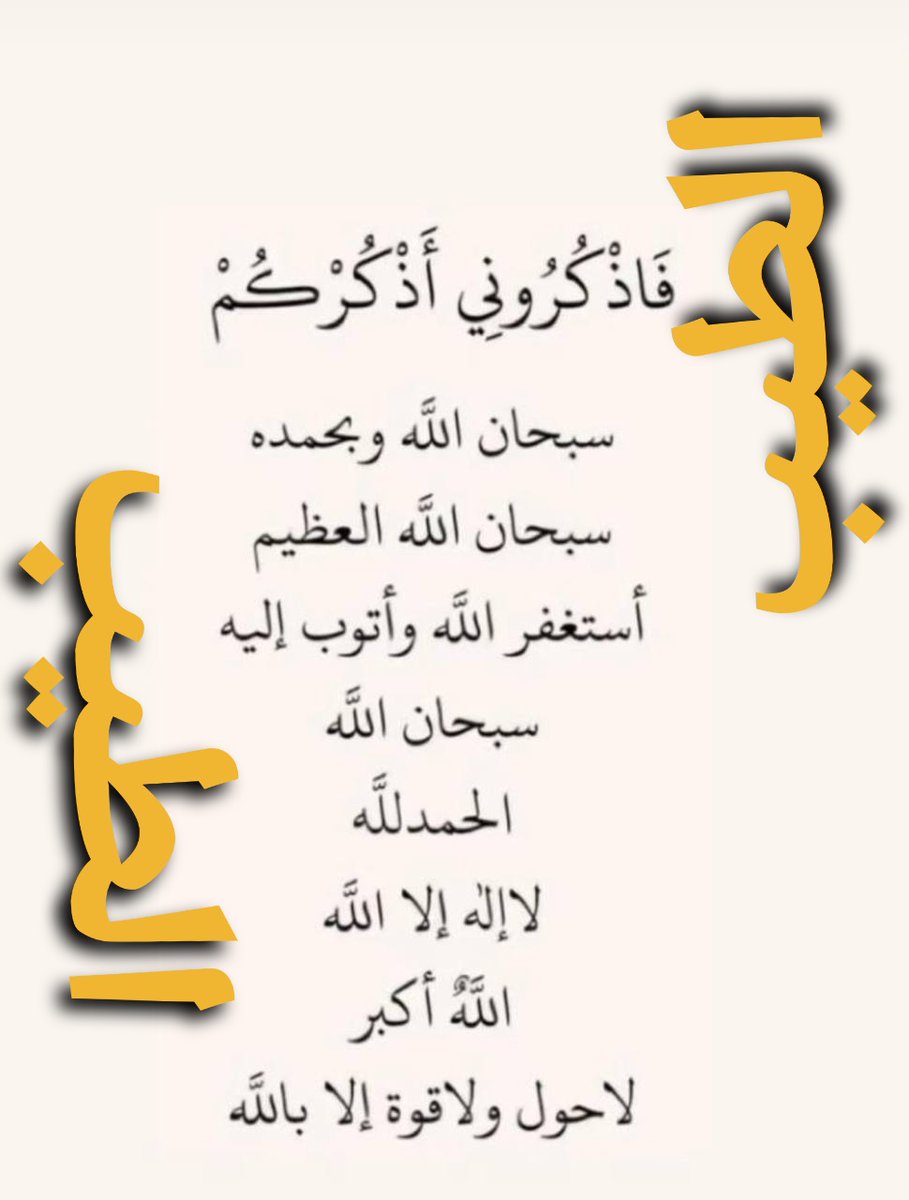 الطيب
فَاذْكُرُونِي أَذْكُرْكُمْ
سبحان اللَّه وبحمده
سبحان اللَّه العظيم
أستغفر اللَّه وأتوب إليه
سبحان اللَّه
الحمدللَّه
لاإلٰه إلا اللَّه
اللَّهٌ أكبر
لاحول ولاقوة إلا باللَّه
الطيب